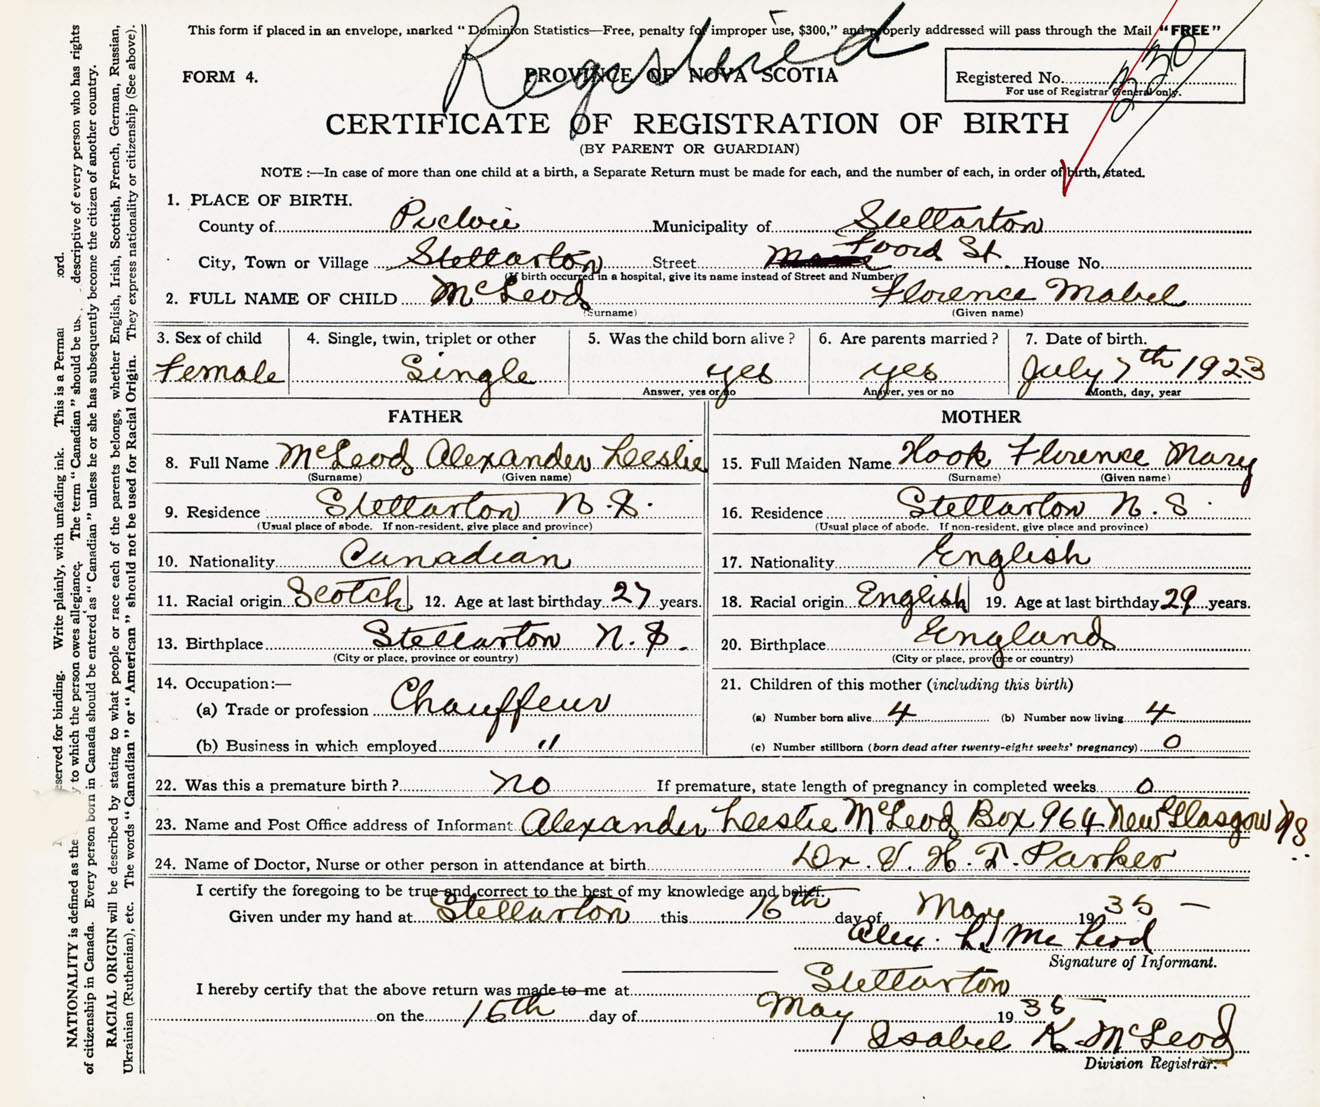 This form if placed in an envelope, marked "Dominion Statistics—Free, penalty for improper use, $300," and properly addressed will pass through the Mail "FREE"
Registered
FORM 4.
PROVINCE OF NOVA SCOTIA
Registered No.
For use of Registrar General only.
CERTIFICATE OF REGISTRATION OF BIRTH
(BY PARENT OR GUARDIAN)
NOTE :—In case of more than one child at a birth, a Separate Return must be made for each, and the number of each, in order of birth, stated.
1. PLACE OF BIRTH.
County of Pictou Municipality of Stellarton
City, Town or Village Stellarton Street Foord St. House No.
(If birth occurred in a hospital, give its name instead of Street and Number)
2. FULL NAME OF CHILD McLeod Florence Mabel
(Surname) (Given name)
3. Sex of child 4. Single, twin, triplet or other 5. Was the child born alive ? 6. Are parents married ? 7. Date of birth.
Female Single yes yes July 7th 1923
Answer, yes or no Answer, yes or no Month, day, year
FATHER MOTHER
8. Full Name McLeod Alexander Leslie 15. Full Maiden Name Hook Florence Mary
(Surname) (Given name) (Surname) (Given name)
9. Residence Stellarton N.S. 16. Residence Stellarton N.S.
(Usual place of abode. If non-resident, give place and province) (Usual place of abode. If non-resident, give place and province)
10. Nationality Canadian 17. Nationality English
11. Racial origin Scotch 12. Age at last birthday 27 years. 18. Racial origin English 19. Age at last birthday 29 years.
13. Birthplace Stellarton N.S. 20. Birthplace England
(City or place, province or country) (City or place, province or country)
14. Occupation:— 21. Children of this mother (including this birth)
(a) Trade or profession Chauffeur (a) Number born alive 4 (b) Number now living 4
(b) Business in which employed " (c) Number stillborn (born dead after twenty-eight weeks' pregnancy) 0
22. Was this a premature birth ? no If premature, state length of pregnancy in completed weeks 0
23. Name and Post Office address of Informant Alexander Leslie McLeod Box 964 New Glasgow NS
24. Name of Doctor, Nurse or other person in attendance at birth Dr. V. H. T. Parker
I certify the foregoing to be true and correct to the best of my knowledge and belief.
Given under my hand at Stellarton this 16th day of May 1935
Alex. L. McLeod
Signature of Informant.
I hereby certify that the above return was made to me at Stellarton
on the 16th day of May 1935
Isabel K. McLeod
Division Registrar.
served for binding. Write plainly, with unfading ink. This is a Perma ord.
NATIONALITY is defined as the y to which the person owes allegiance. The term "Canadian" should be us descriptive of every person who has rights
of citizenship in Canada. Every person born in Canada should be entered as "Canadian" unless he or she has subsequently become the citizen of another country.
RACIAL ORIGIN will be described by stating to what people or race each of the parents belongs, whether English, Irish, Scottish, French, German, Russian,
Ukrainian (Ruthenian), etc. The words "Canadian" or "American" should not be used for Racial Origin. They express nationality or citizenship (See above).